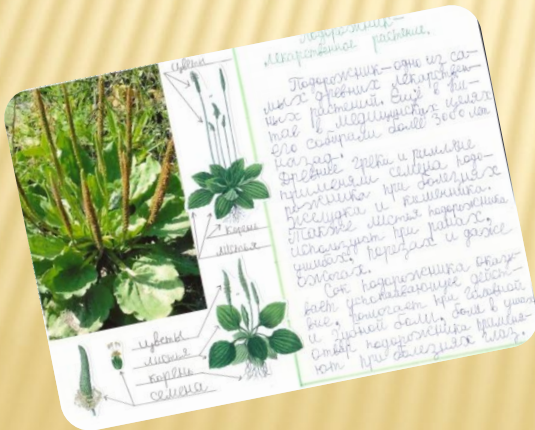 цветы
корень
листья
цветы
листья
корень
семена
Подорожник –
лекарственное растение.
Подорожник – одно из са-
мых древних лекарствен-
ных растений. Ещё в Ки-
тае в медицинских целях
его собирали более 3000 лет
назад.
Древние греки и римляне
применяли семена подо-
рожника при болезнях
желудка и кишечника.
Также листья подорожника
используют при ранах,
ушибах, порезах и даже
ожогах.
Сок подорожника оказы-
вает успокаивающее дейст-
вие, помогает при головной
и зубной боли, боли в ушах
отвар подорожника применя-
ют при болезнях глаз.